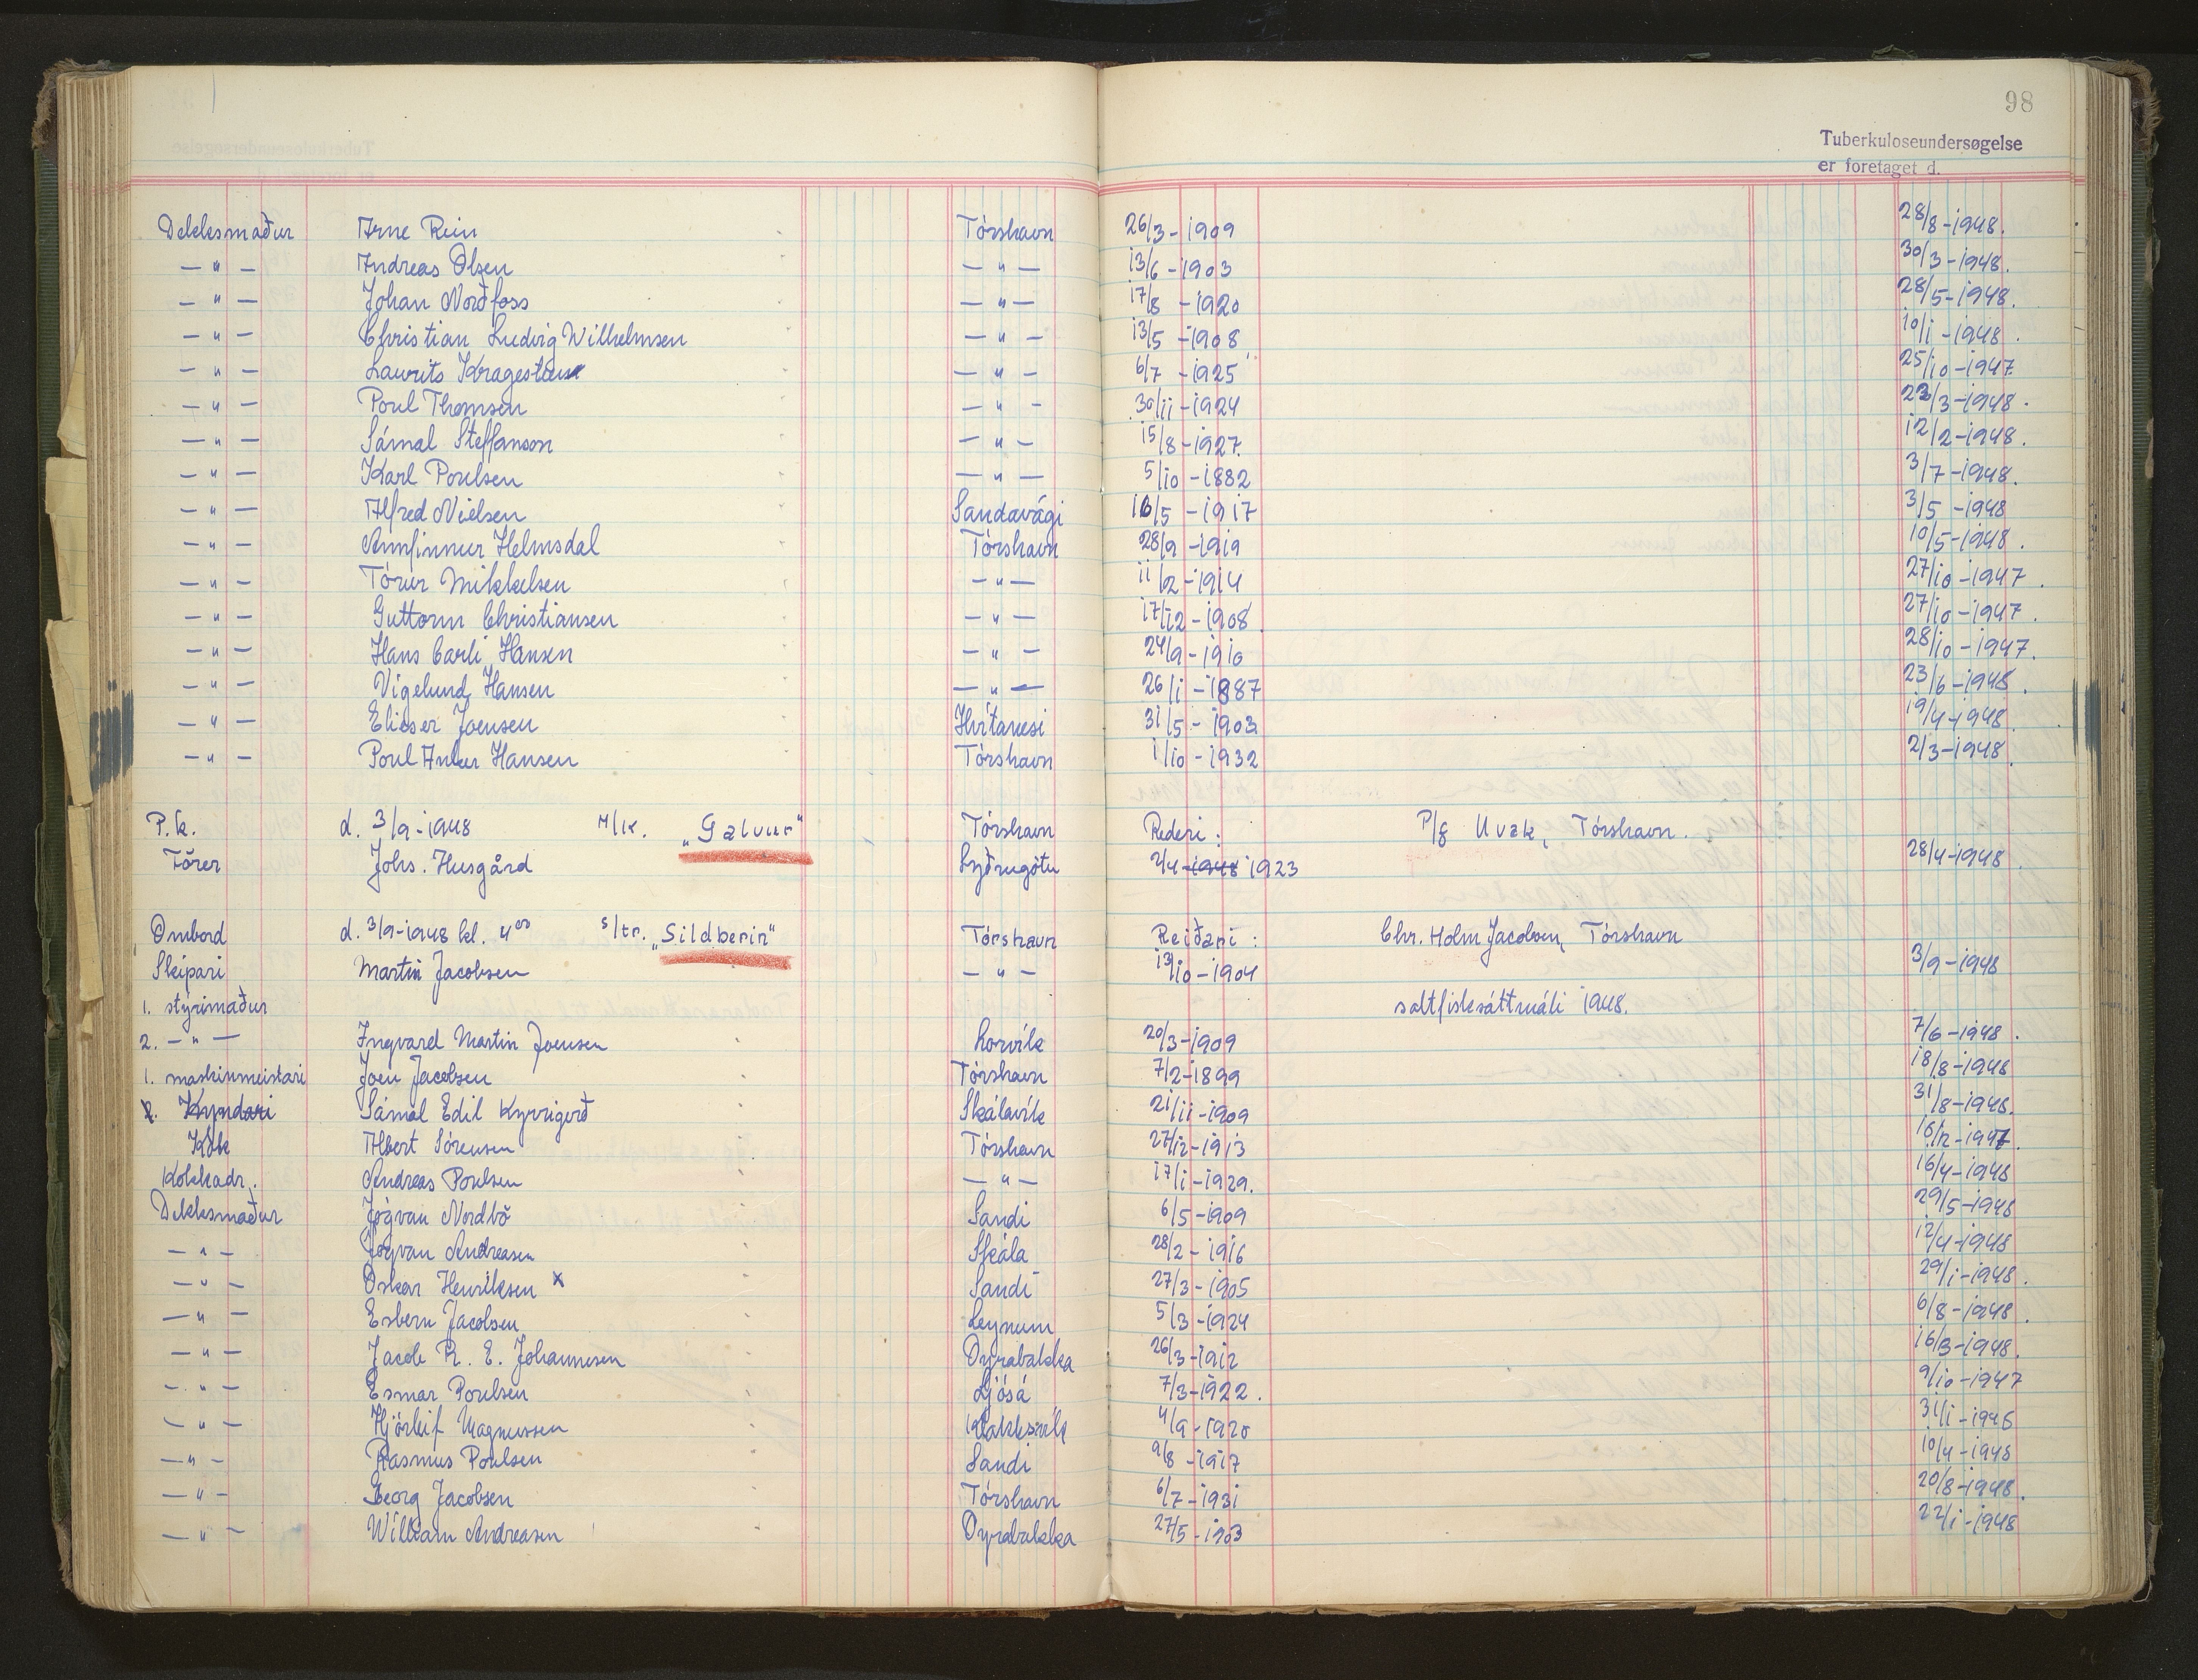 98
Tuberkuloseundersøgelse
er foretaget d.
Dekksmaður Arne Rein Tórshavn 26/3-1909 28/8-1948.
— " — Andreas Olsen — " — 13/6-1903 30/3-1948.
— " — Johan Norðfoss — " — 17/8-1920 28/5-1948.
— " — Christian Ludvig Wilhelmsen — " — 13/5-1908 10/1-1948.
— " — Laurits — " — 6/7-1925 25/10-1947
— " — Poul Thomsen — " — 30/11-1924 23/3-1948.
— " — Sámal Steffanson — " — 15/8-1927. 12/2-1948.
— " — Karl Poulsen — " — 5/10-1882 3/7-1948.
— " — Alfred Nielsen Sandavági 16/5-1917 3/5-1948
— " — Annfinnur Helmsdal Tórshavn 28/9-1919 10/5-1948.
— " — Tórur Mikkelsen — " — 11/2-1914 27/10-1947.
— " — Guttorm Christiansen — " — 17/12-1908. 27/10-1947.
— " — Hans Carli Hansen — " — 24/9-1910 28/10-1947.
— " — Vigelund Hansen — " — 26/1-1887 23/6-1948.
— " — Elieser Joensen Hvítanesi 31/5-1903 19/4-1948.
— " — Poul Anker Hansen Tórshavn 1/10-1932 2/3-1948.
P.k. d. 3/9-1948 M/K. "Galvur" Tórshavn Rederi: P/f Uvak, Tórshavn.
Förer Johs. Husgård Syðrugøtu 2/4-1948 1923 28/4-1948.
Ombord d. 3/9-1948 kl. 4⁰⁰ s/tr. "Sildberin" Tórshavn Reiðari: Chr. Holm Jacobsen, Tórshavn
Skipari Martin Jacobsen — " — 13/10-1904 3/9-1948
1. stýrimaður saltfiskasáttmáli 1948.
2. — " — Ingvard Martin Joensen Lorvík 20/3-1909 7/6-1948.
1. maskinmeistari Joen Jacobsen Tórshavn 7/2-1899 18/8-1948
2. Kyndari Sámal Edil Kyrrigerð Skálavík 21/11-1909 31/8-1948.
Kokk Albert Sörensen Tórshavn 27/12-1913 16/12-1947.
Kokkadr. Andreas Poulsen — " — 17/1-1929. 16/4-1948
Dekksmaður Jógvan Nordbö Sandi 6/5-1909 29/5-1948
— " — Jógvan Andreasen Skála 28/2-1916 12/4-1948
— " — Oskar Henriksen x Sandi 27/3-1905 29/1-1948.
— " — Esbern Jacobsen Leynum 5/3-1924 6/8-1948.
— " — Jacob R. E. Johannesen Oyrabakka 26/3-1912 16/3-1948.
— " — Esmar Poulsen Ljósá 7/3-1922. 9/10-1947
— " — Hjörleif Magnussen Klakksvík 4/9-1920 31/1-1948
— " — Rasmus Poulsen Sandi 9/8-1917 10/4-1948
— " — Georg Jacobsen Tórshavn 6/7-1931 20/8-1948.
— " — William Andreasen Oyrabakka 27/5-1903 22/1-1948